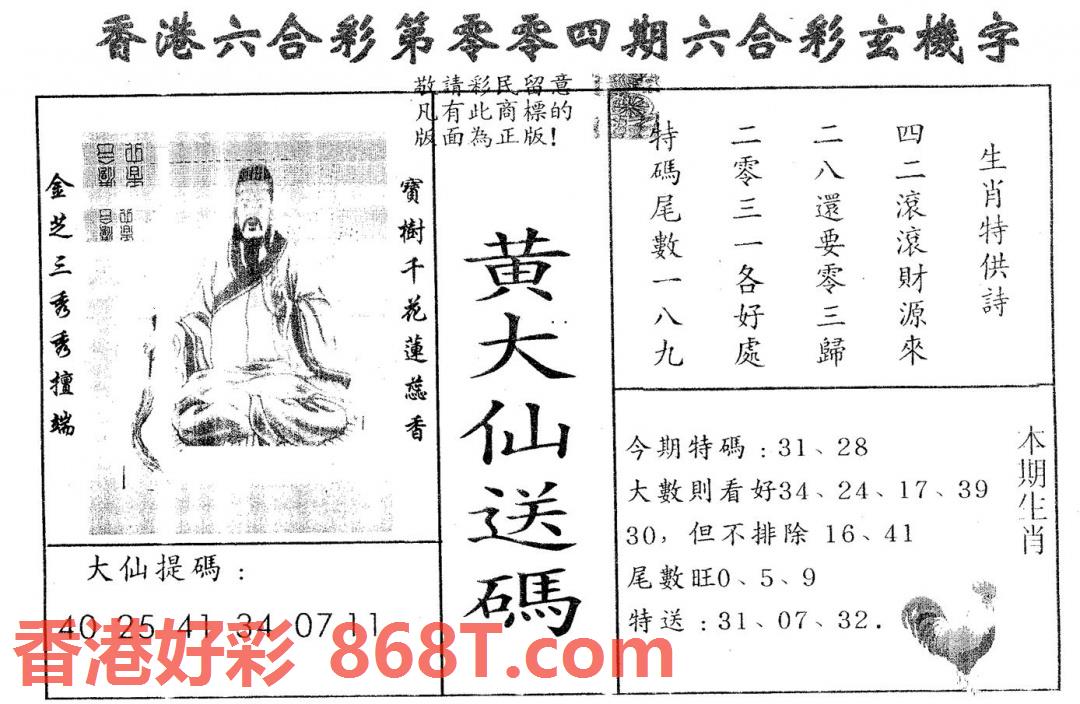 香港六合彩第零零四期六合彩玄機字
敬請彩民留意
凡有此商標的
版面為正版!
金芝三秀秀擅端
寶樹千花蓮蕊香
大仙提碼:
40 25 41 34 07 11
黃大仙送碼
生肖特供詩
四二滾滾財源來
二八還要零三歸
二零三一各好處
特碼尾數一八九
今期特碼:31、28
大數則看好34、24、17、39
30,但不排除 16、41
尾數旺0、5、9
特送:31、07、32.
本期生肖
香港好彩 868T.com